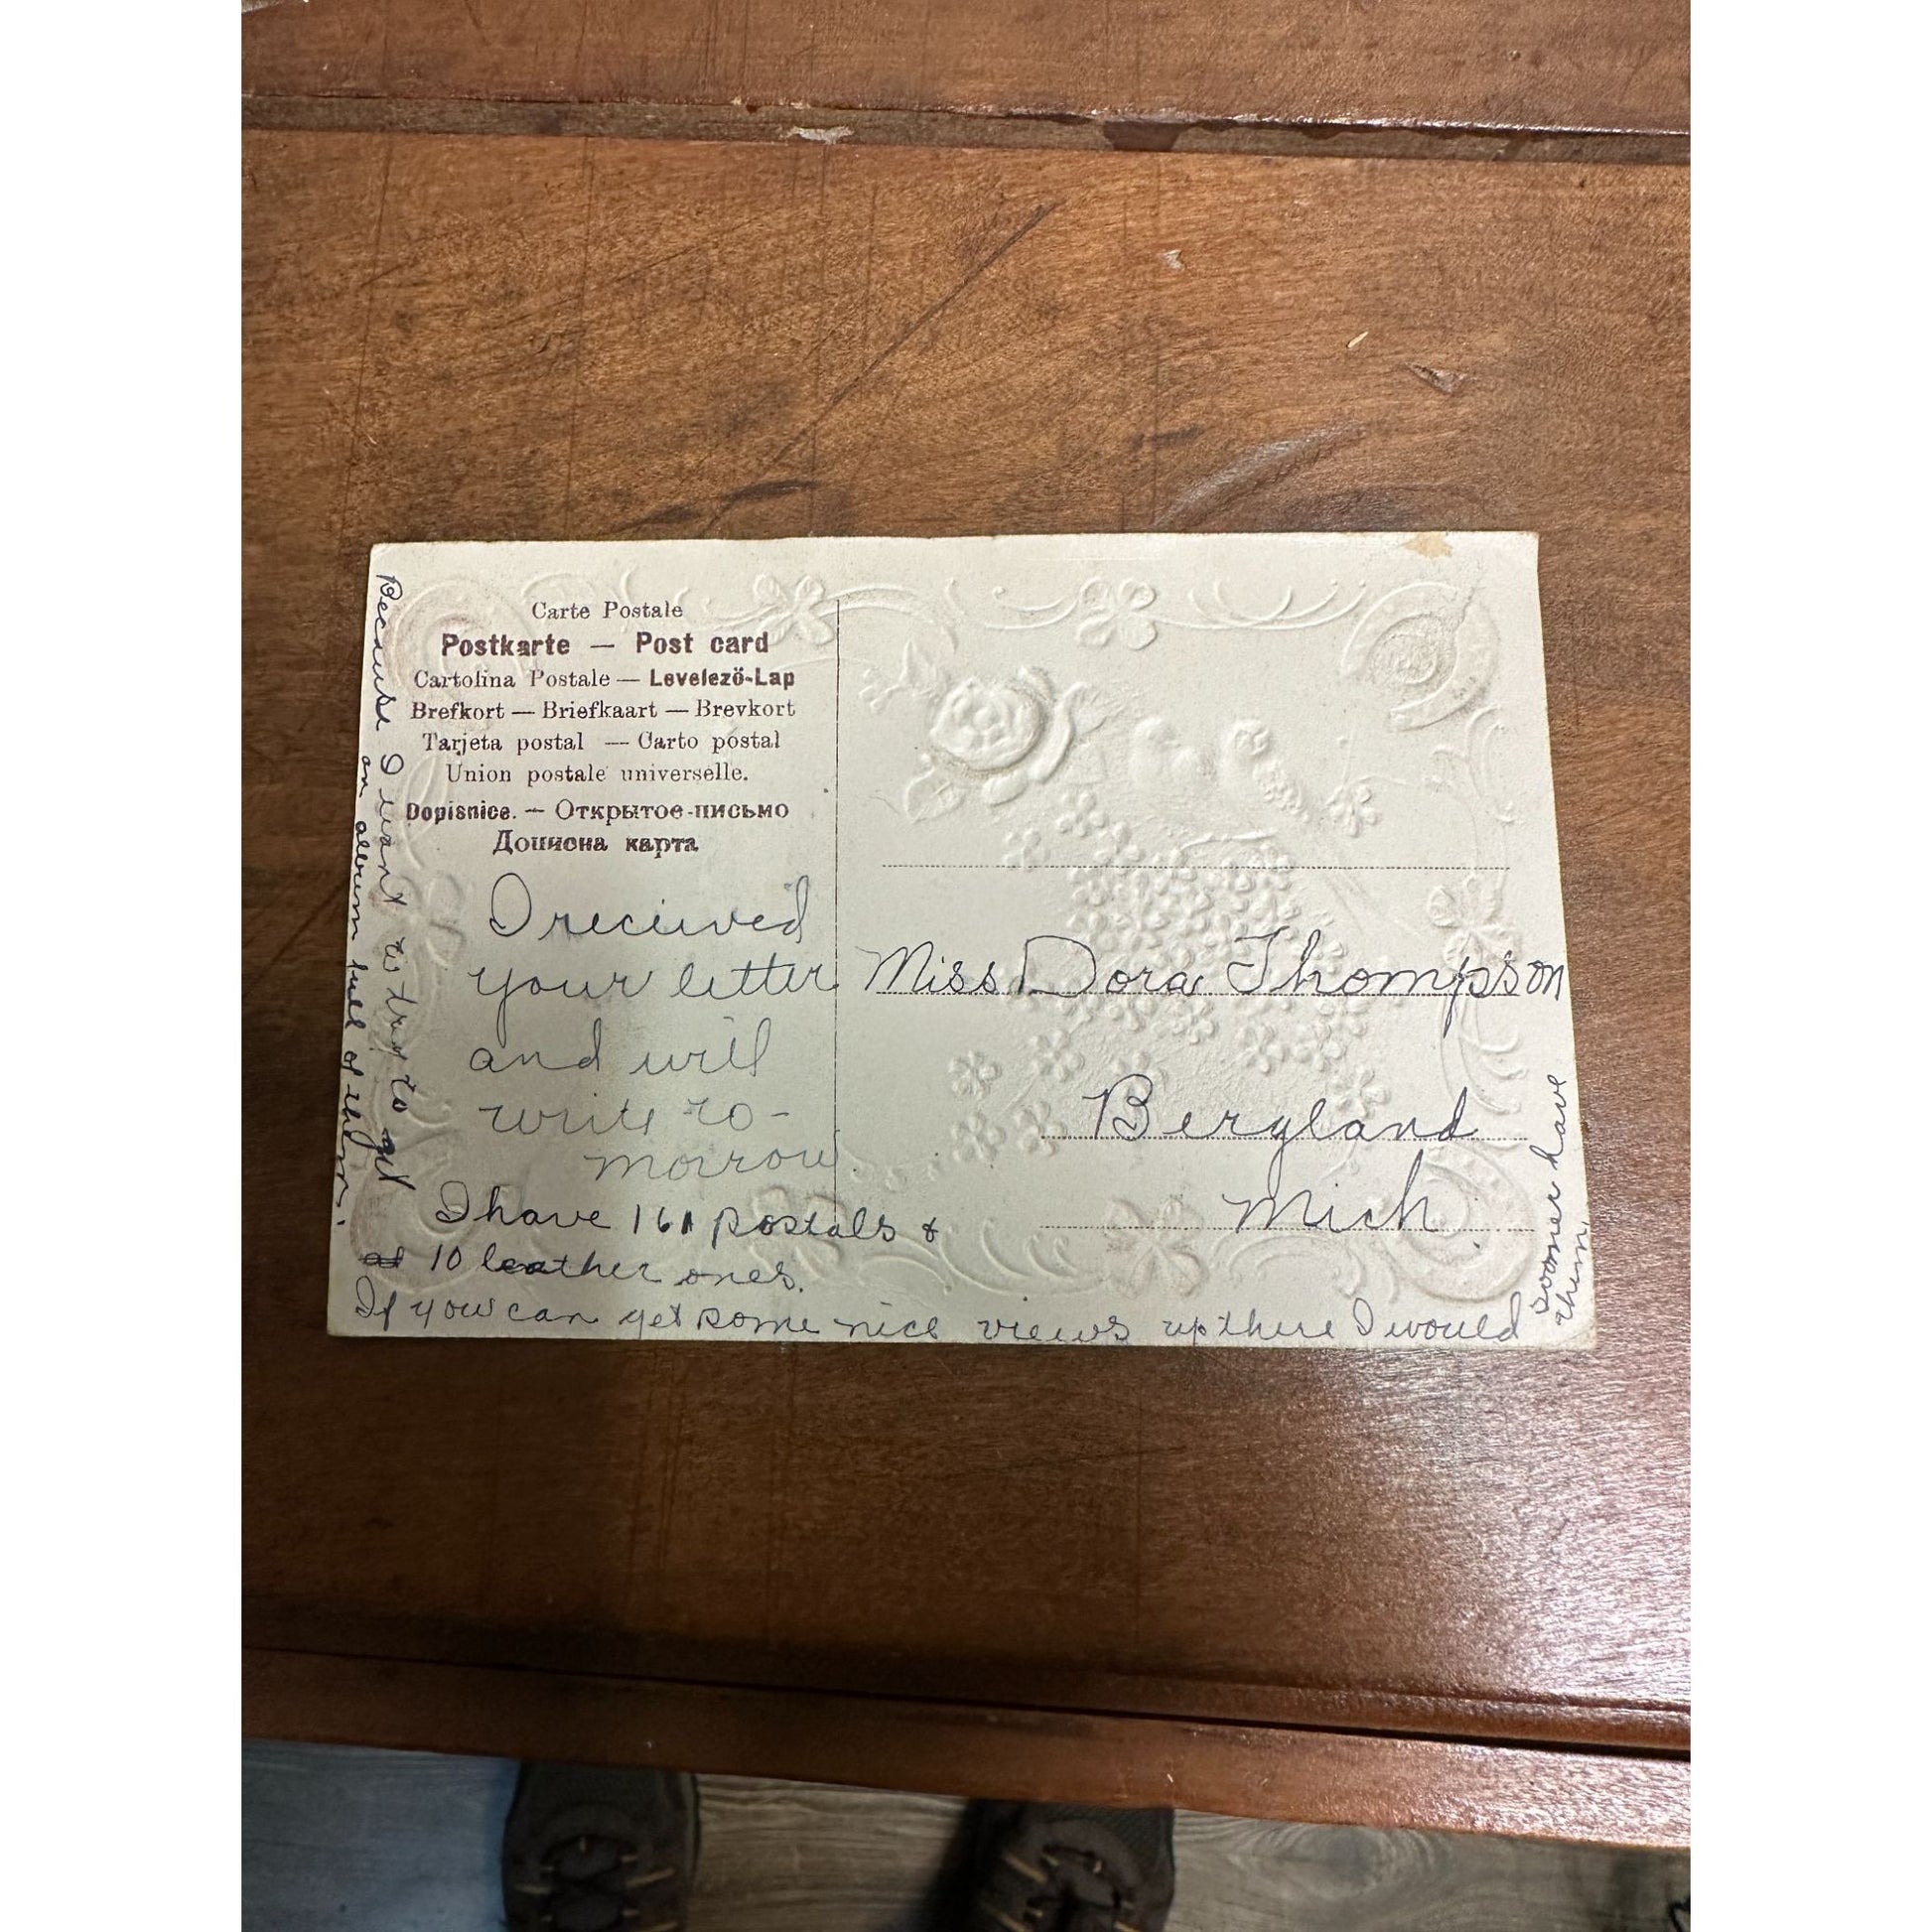 Carte Postale
Postkarte — Post card
Cartolina Postale — Levelezö-Lap
Brefkort — Briefkaart — Brevkort
Tarjeta postal — Carto postal
Union postale universelle.
Dopisnice. — Открытое-письмо
Дописна карта
I recieved
your letter
and will
write to-
morrow.
I have 161 postals &
10 leather ones.
If you can get some nice views up there I would
sooner have
them,
Because I want to try to get
an album full of them.
Miss Dora Thompson
Bergland
Mich.